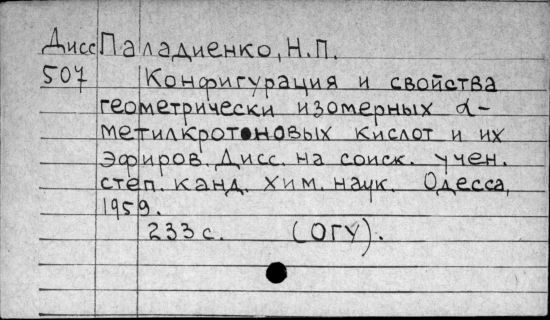 Дисс Паладиенко, Н.П.
507 Конфигурация и свойства
геометрически изомерных α-
метилкротоновых кислот и их
эфиров. Дисс. на соиск. учен.
степ. канд. хим. наук. Одесса,
1959.
233 с. (ОГУ).